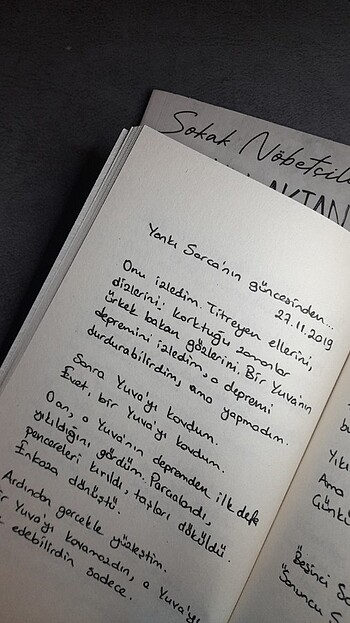 Sokak Nöbetçile
AKTAN
Yankı Sarca'nın güncesinden...
27.11.2019
Onu izledim. Titreyen ellerini,
dizlerini: korktuğu zaman
ürkek bakan gözlerini. Bir Yuva'nın
depremini izledim, o depremi
durdurabilirdim, ama yapmadım.
Sonra Yuva'yı kovdum.
Evet, bir Yuva'yı kovdum.
Ben, o Yuva'nın depremden ilk defa
yıkıldığını gördüm. Parçalandı,
pencereleri kırıldı, taşları döküldü.
Enkaza dönüştü.
Ardından gerçekle yüzleştim.
ir Yuva'yı kovamazdın, o Yuva'yı
edebilirdin sadece.
bu
Yıkı
Ama
Günkü
"Beşinci So
"Sonuncu S